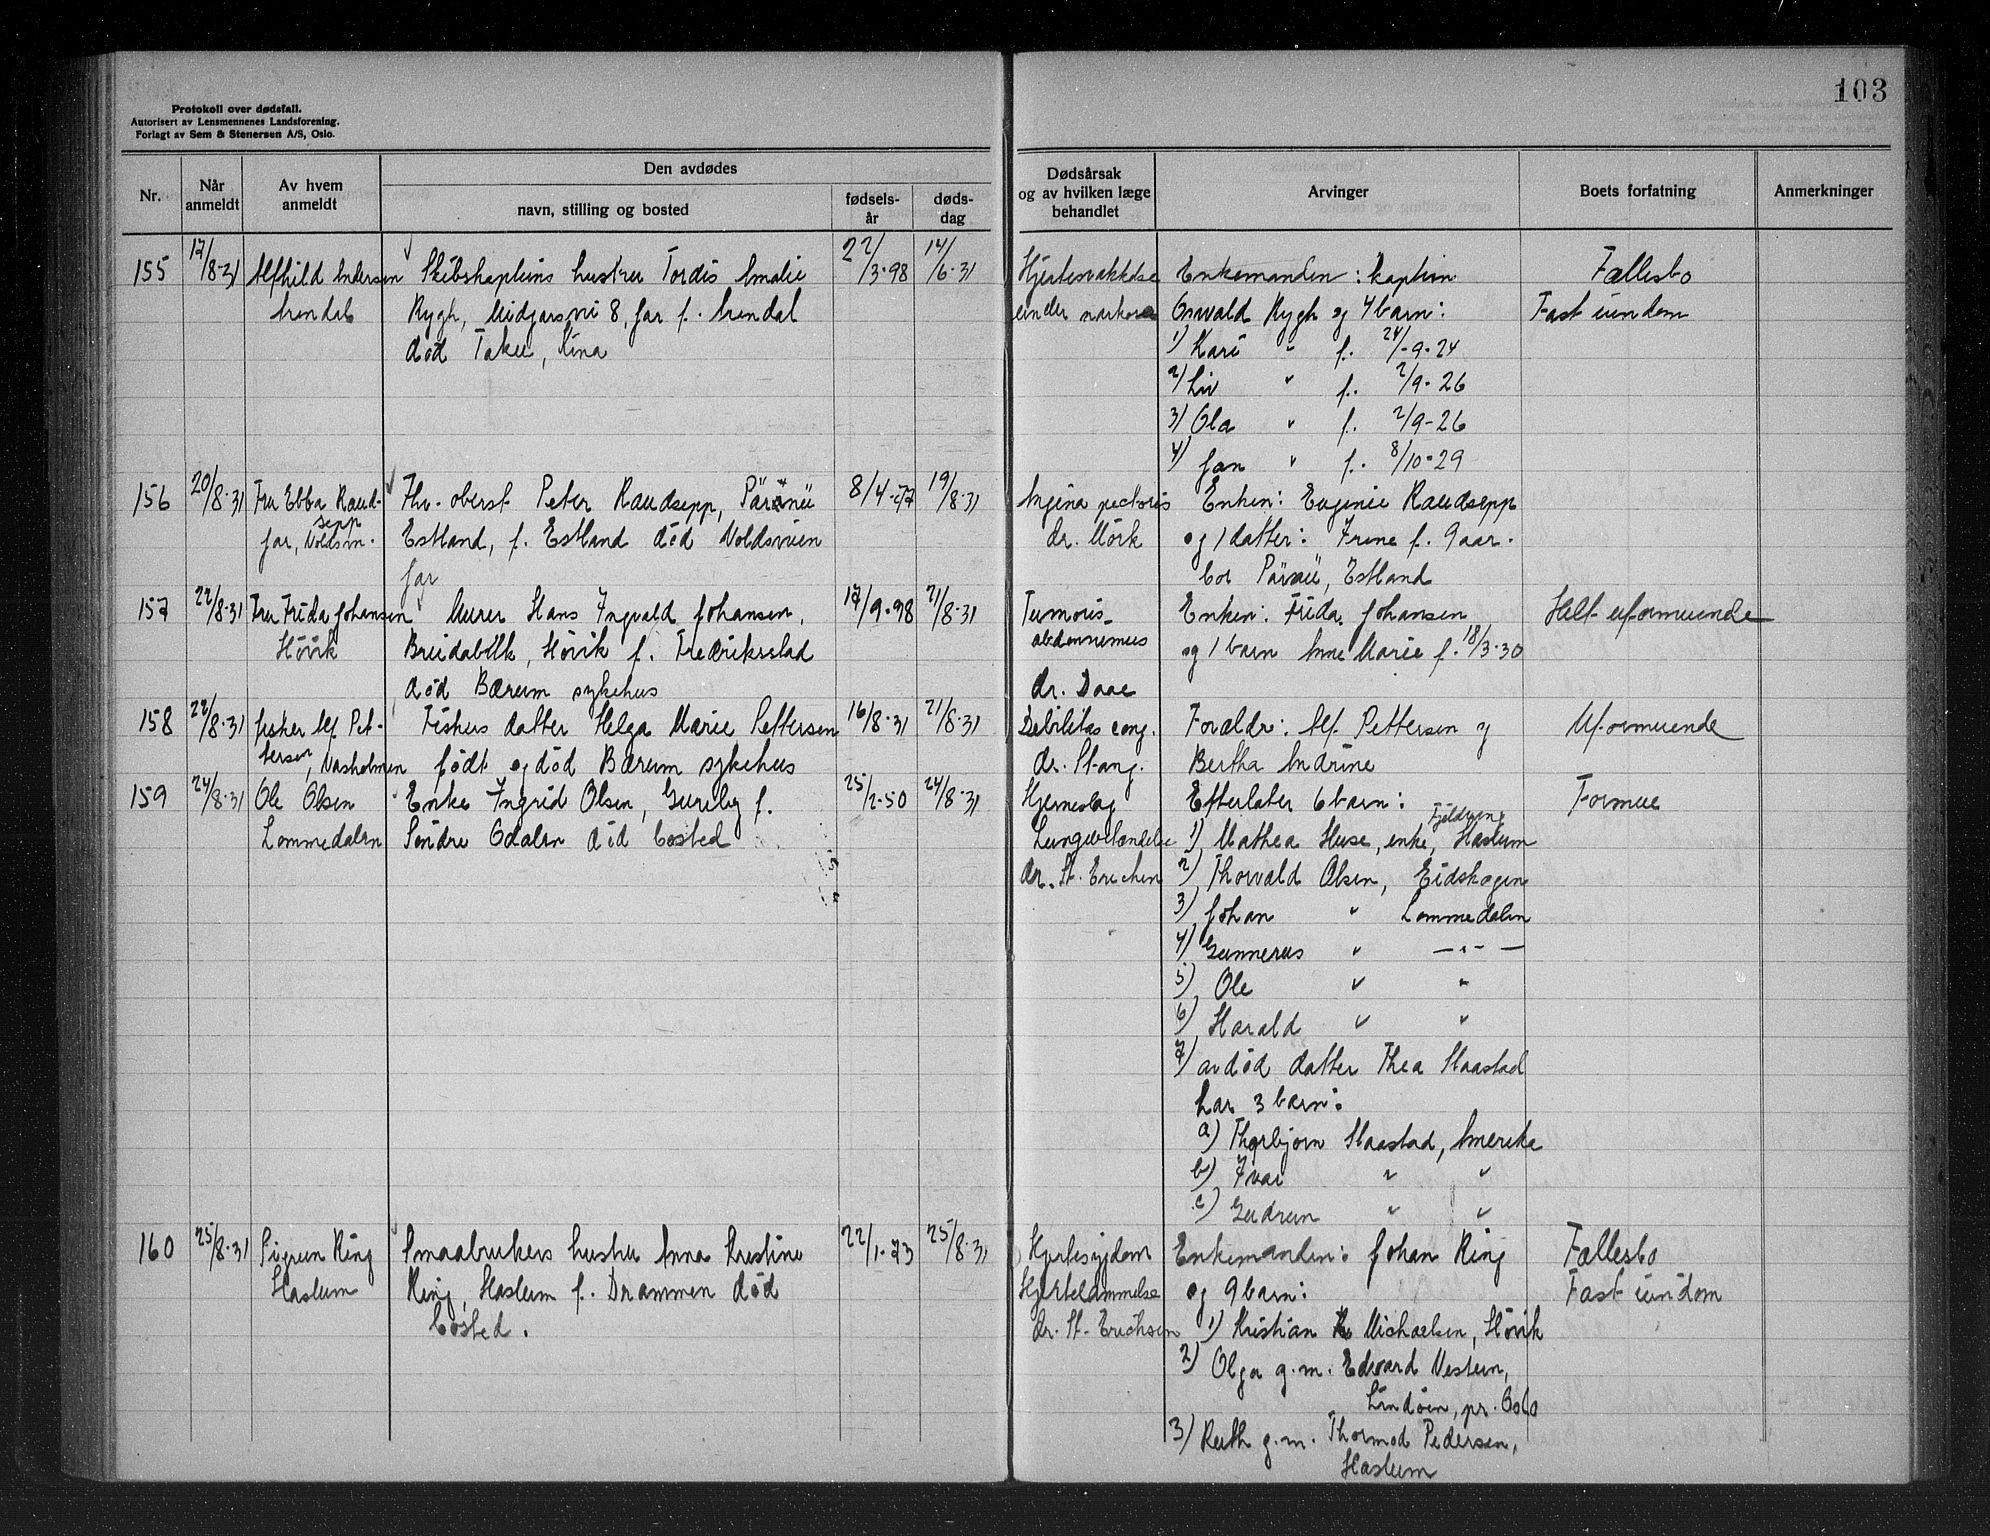 103
Protokoll over dødsfall.
Autorisert av Lensmennenes Landsforening.
Forlagt av Sem & Stenersen A/S, Oslo.
Nr.
Når anmeldt
Av hvem anmeldt
Den avdødes
navn, stilling og bosted
fødsels-år
døds-dag
Dødsårsak og av hvilken læge behandlet
Arvinger
Boets forfatning
Anmerkninger
155
17/8-31
Alfhild Andersen
Arendal
Skibskapteins hustru Tordis Amalie
Rygh, Midgarsvei 8, Jar f. Arendal
død Taku, Kina
22/3-98
14/6-31
Hjertesvækkelse
under narkose
Enkemanden: kaptein
Oswald Rygh og 4 barn:
1) Kari " f. 24/-9-24
2) Liv " f. 2/9-26
3) Ola " f. 2/9-26
4) Jan " f. 8/10-29
Fællesbo
Fast eiendom
156
20/8-31
Fru Ebba Raud-
sepp
Jar, Voldsvn.
Fhv. oberst Peter Raudsepp, Pärnu
Estland, f. Estland død Voldsveien
Jar
8/4-77
19/8-31
Angina pectoris
dr. Mørk
Enken: Eugenie Raudsepp
og 1 datter: Irene f. 9 aar.
bor Pärnu, Estland
157
22/8-31
Fru Frida Johansen
Høvik
Murer Hans Ingvald Johansen,
Breidablik, Høvik f. Fredriksstad
død Bærum sykehus
17/9-98
21/8-31
Tumoris
abdominus
dr. Daae
Enken: Frida Johansen
og 1 barn Anne Marie f. 18/3-30
Helt uformuende
158
22/8-31
fisker Alf Pet-
tersen, Vasholmen
Fiskers datter Helga Marie Pettersen
født og død Bærum sykehus
16/8-31
21/8-31
Debilitas cong.
dr. Stang.
Forældre: Alf Pettersen og
Bertha Andrine
Uformuende
159
24/8-31
Ole Olsen
Lommedalen
Enke Ingrid Olsen, Gureby f.
Søndre Odalen død bosted
25/2-50
24/8-31
Hjerneslag
Lungebetændelse
dr. St. Erichsen
Efterlater 6 barn:
1) Mathea Huse, enke, Haslum
2) Thorvald Olsen, Eidskogen
3) Johan " Lommedalen
4) Gunnerus " — " —
5) Ole " "
6) Harald " "
7) avdød datter Thea Slaastad
har 3 barn:
a) Thorbjørn Slaastad, Amerika
b) Ivar " "
c) Gudrun " "
Formue
160
25/8-31
Sigrun Ring
Haslum
Smaabrukers hustru Anna Kristine
Ring, Haslum f. Drammen død
bosted.
22/1-73
25/8-31
Hjertesygdom
Hjertelammelse
dr. St. Erichsen
Enkemanden: Johan Ring
og 9 barn:
1) Kristian Michaelsen, Høvik
2) Olga g.m. Edvard Vestern,
Lindøen, pr. Oslo
3) Ruth g.m. Thormod Pedersen,
Haslum
Fællesbo
Fast eiendom